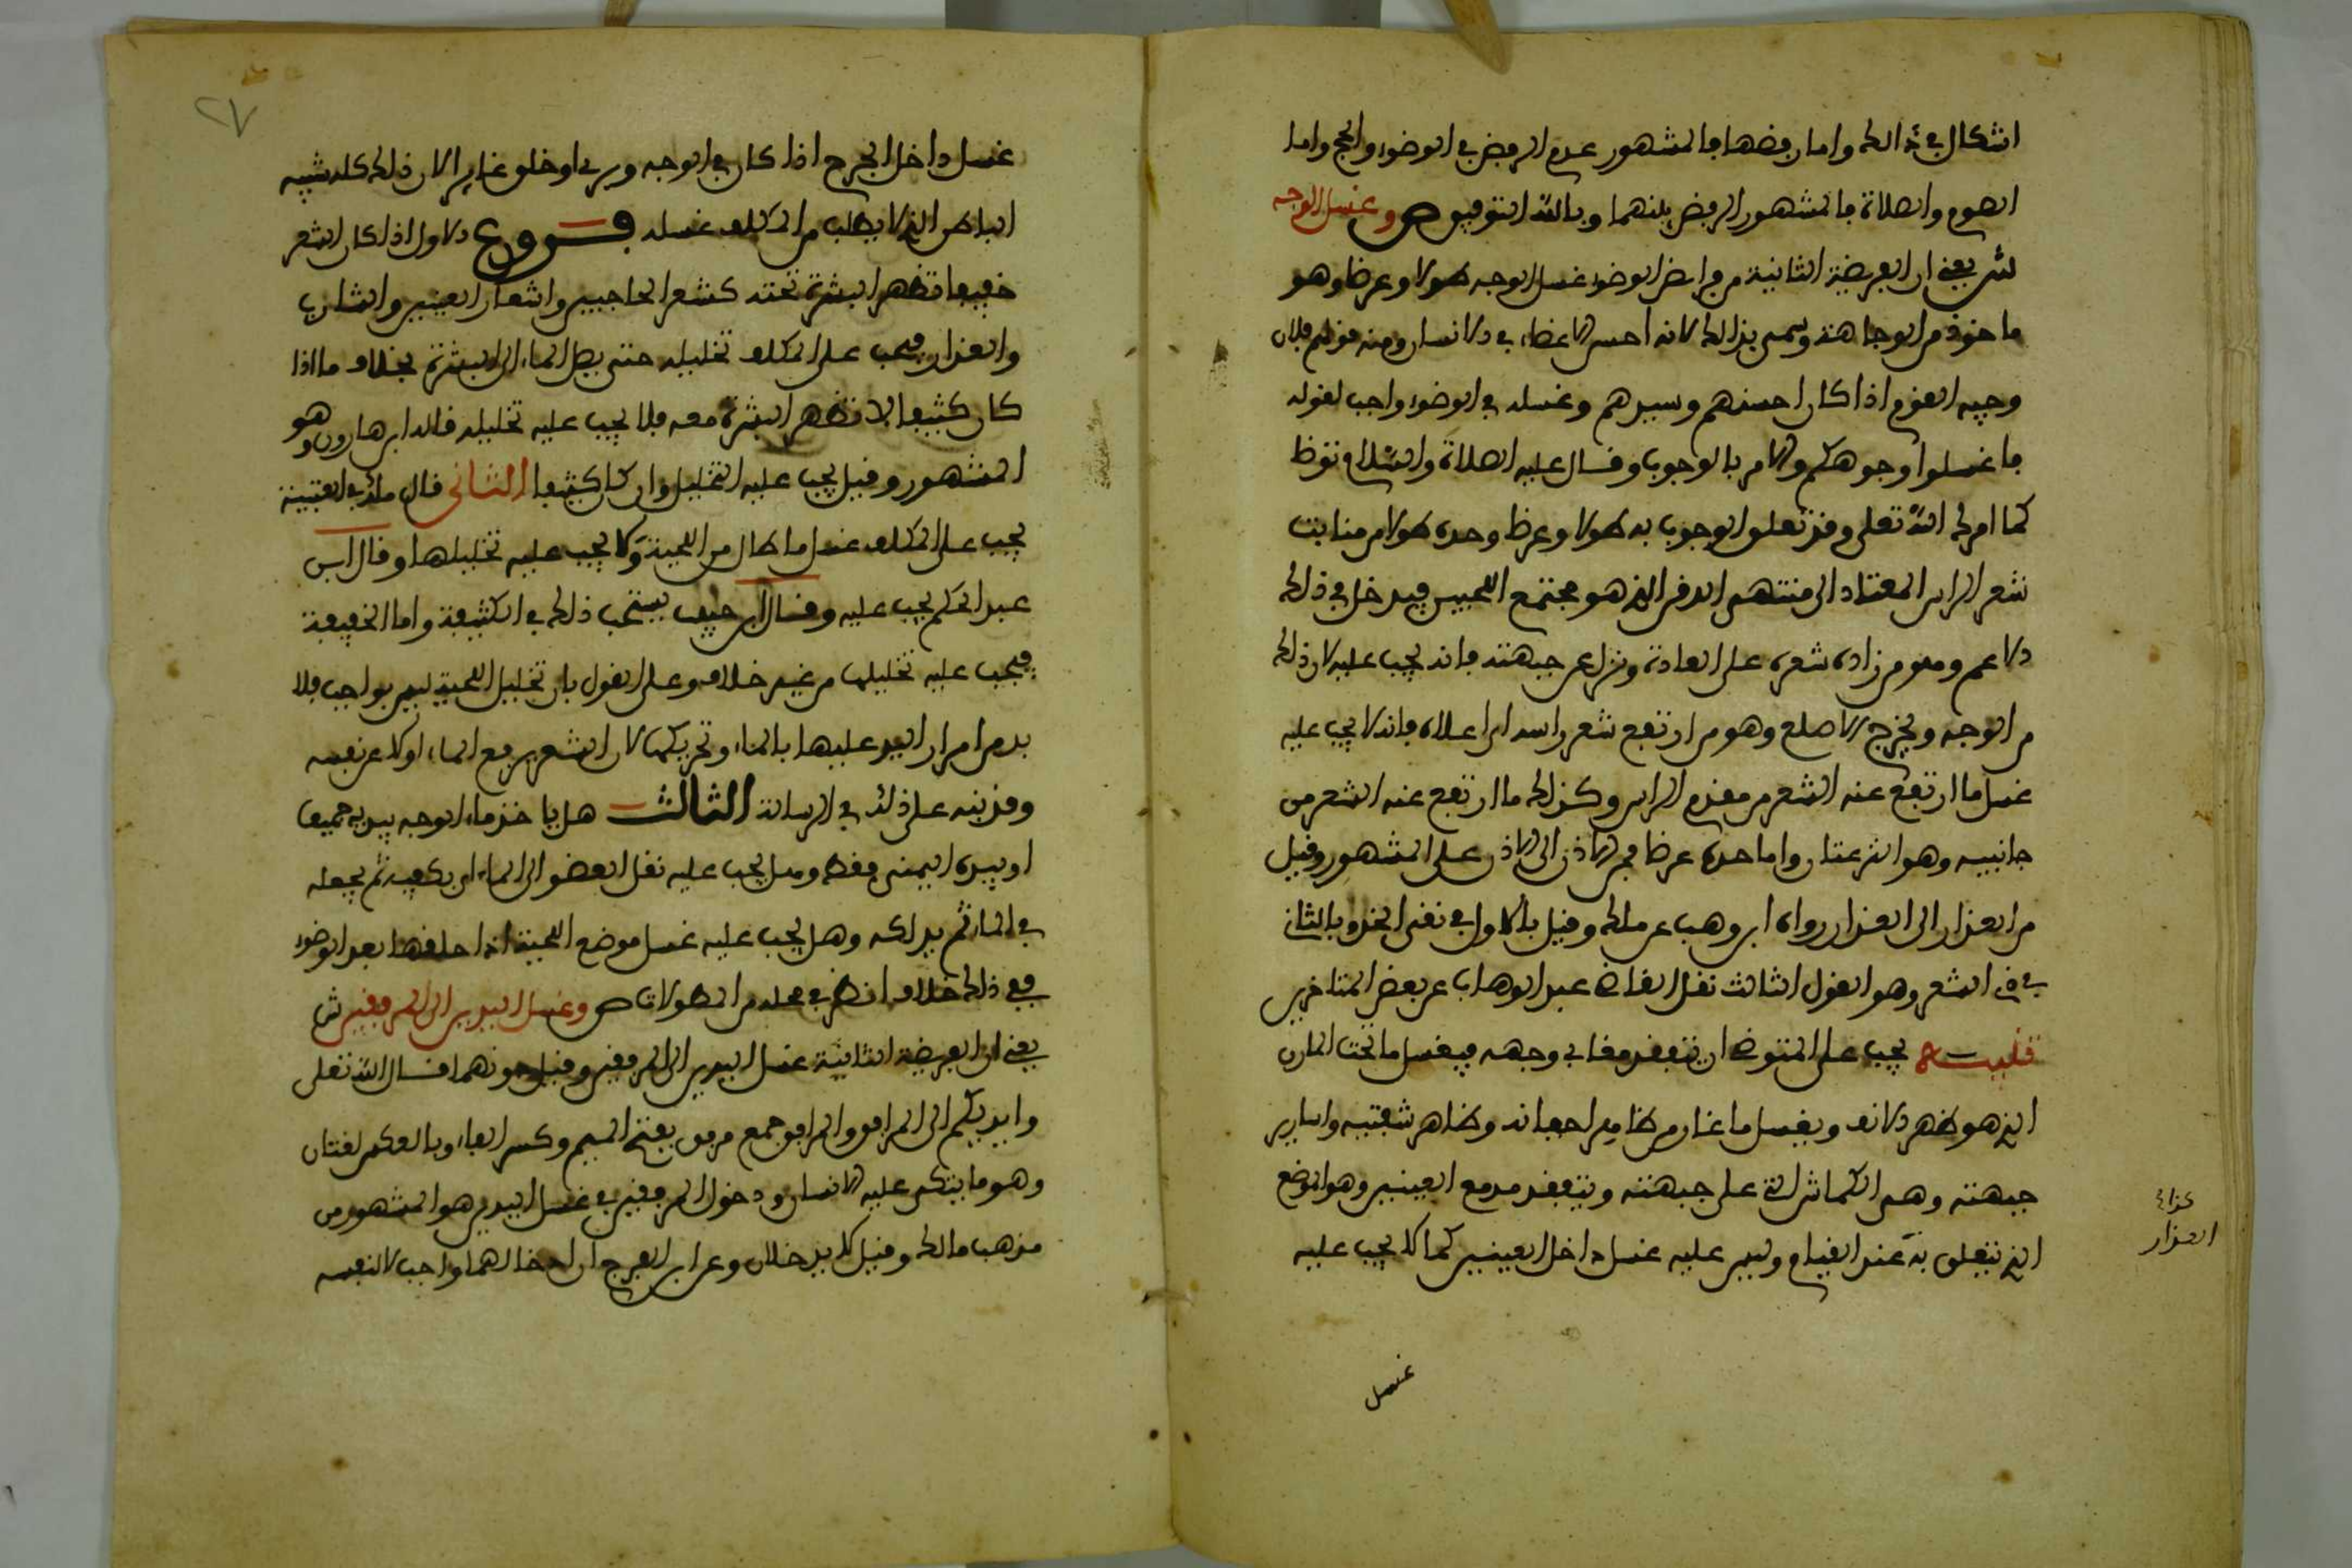 اشكال في ذالك واما رفضها فالمشهور عدم الرفض في الوضوء والحج واما
الصوم والصلاة فالمشهور الرفض فيهما وبالله التوفيق ص وغسل الوجه
ش يعني ان الفريضة الثانية من فرائض الوضوء غسل الوجه طولا وعرضا وهو
ماخوذ من الوجاهة وسمي بذالك لانه احسن الاعضاء في الانسان ومنه قولهم فلان
وجيه القوم اذا كان احسنهم وسيدهم وغسله في الوضوء واجب لقوله
فاغسلوا وجوهكم والامر بالوجوب وقال عليه الصلاة والسلام توضا
كما امرك الله تعلى وقد تعلق الوجوب به طولا وعرضا وحده طولا من منابت
شعر الراس المعتاد الى منتهى الدقن الذي هو مجتمع اللحيين فيدخل في ذلك
الاغم وهو من زاده شعره على العادة ونزل عن جبهته فانه يجب عليه لان ذلك
من الوجه ويخرج الاصلع وهو من ارتفع شعر راسه الى اعلاه فانه لا يجب عليه
غسل ما ارتفع عنه الشعر من مقدم الراس وكذلك ما ارتفع عنه الشعر من
جانبيه وهو النزعتان واما حده عرضا فمن الاذن الى الاذن على المشهور وقيل
من العذار الى العذار رواه ابن وهب عن ملك وقيل بالاول في نقي الخد وبالثاني
في ذي الشعر وهو القول الثالث نقل القاضي عبد الوهاب عن بعض المتاخرين
تنبيه يجب على المتوضي ان يتفقد مغابن وجهه فيغسل ما تحت المارن
الذي هو ظهر الانف ويغسل ما غار من ظاهر اجفانه وظاهر شفتيه واسارير
جبهته وهي الكماش التي على جبهته ويتفقد مدمع العينين وهو الموضع
الذي تتعلق به عند القيام وليس عليه غسل داخل العينين كما لا يجب عليه
العذار
غسل
٢٧
غسل داخل الجرح اذا كان في الوجه وبرئ او خلق غايرا لان ذلك كله شبيه
الباطن الذي لا يطلب من المكلف غسله فروع الاول اذا كان الشعر
خفيفا تظهر البشرة تحته كشعر الحاجبين واشعار العينين والشارب
والعذار فيجب على المكلف تخليله حتى يصل الماء الى البشرة بخلاف ما اذا
كان كثيفا لا تظهر البشرة معه فلا يجب عليه تخليله قاله ابن هارون وهو
المشهور وقيل يجب عليه التخليل وان كان كثيفا الثاني قال ملك في العتبية
يجب على المكلف غسل ما طال من اللحية ولا يجب عليه تخليلها وقال ابن
عبد الحكم يجب عليه وقال ابن حبيب يستحب ذلك في الكثيفة واما الخفيفة
فيجب عليه تخليلها من غير خلاف وعلى القول بان تخليل اللحية ليس بواجب فلا
بد من امرار اليد عليها بالماء وتحريكها لان الشعر يدفع الماء اولا عن نفسه
وقد نبه على ذلك في الرسالة الثالث هل ياخذ ماء الوجه بيديه جميعا
او بيده اليمنى فقط وهل يجب عليه نقل العضو الى الماء او يكفيه ثم يجعله
في الماء ثم يدلكه وهل يجب عليه غسل موضع اللحية اذا حلقها بعد الوضوء
ففي ذلك خلاف انظره في محله من المطولات ص وغسل اليدين الى المرفقين ش
يعني ان الفريضة الثالثة غسل اليدين الى المرفقين وقيل دونهما قال الله تعلى
وايديكم الى المرافق والمرافق جمع مرفق بفتح الميم وكسر الفاء وبالعكس لغتان
وهو ما يتكئ عليه الانسان ودخول المرفقين في غسل اليدين هو المشهور من
مذهب مالك وقيل لا يدخلان وعن ابي الفرج ان ادخالهما واجب لا لنفسه